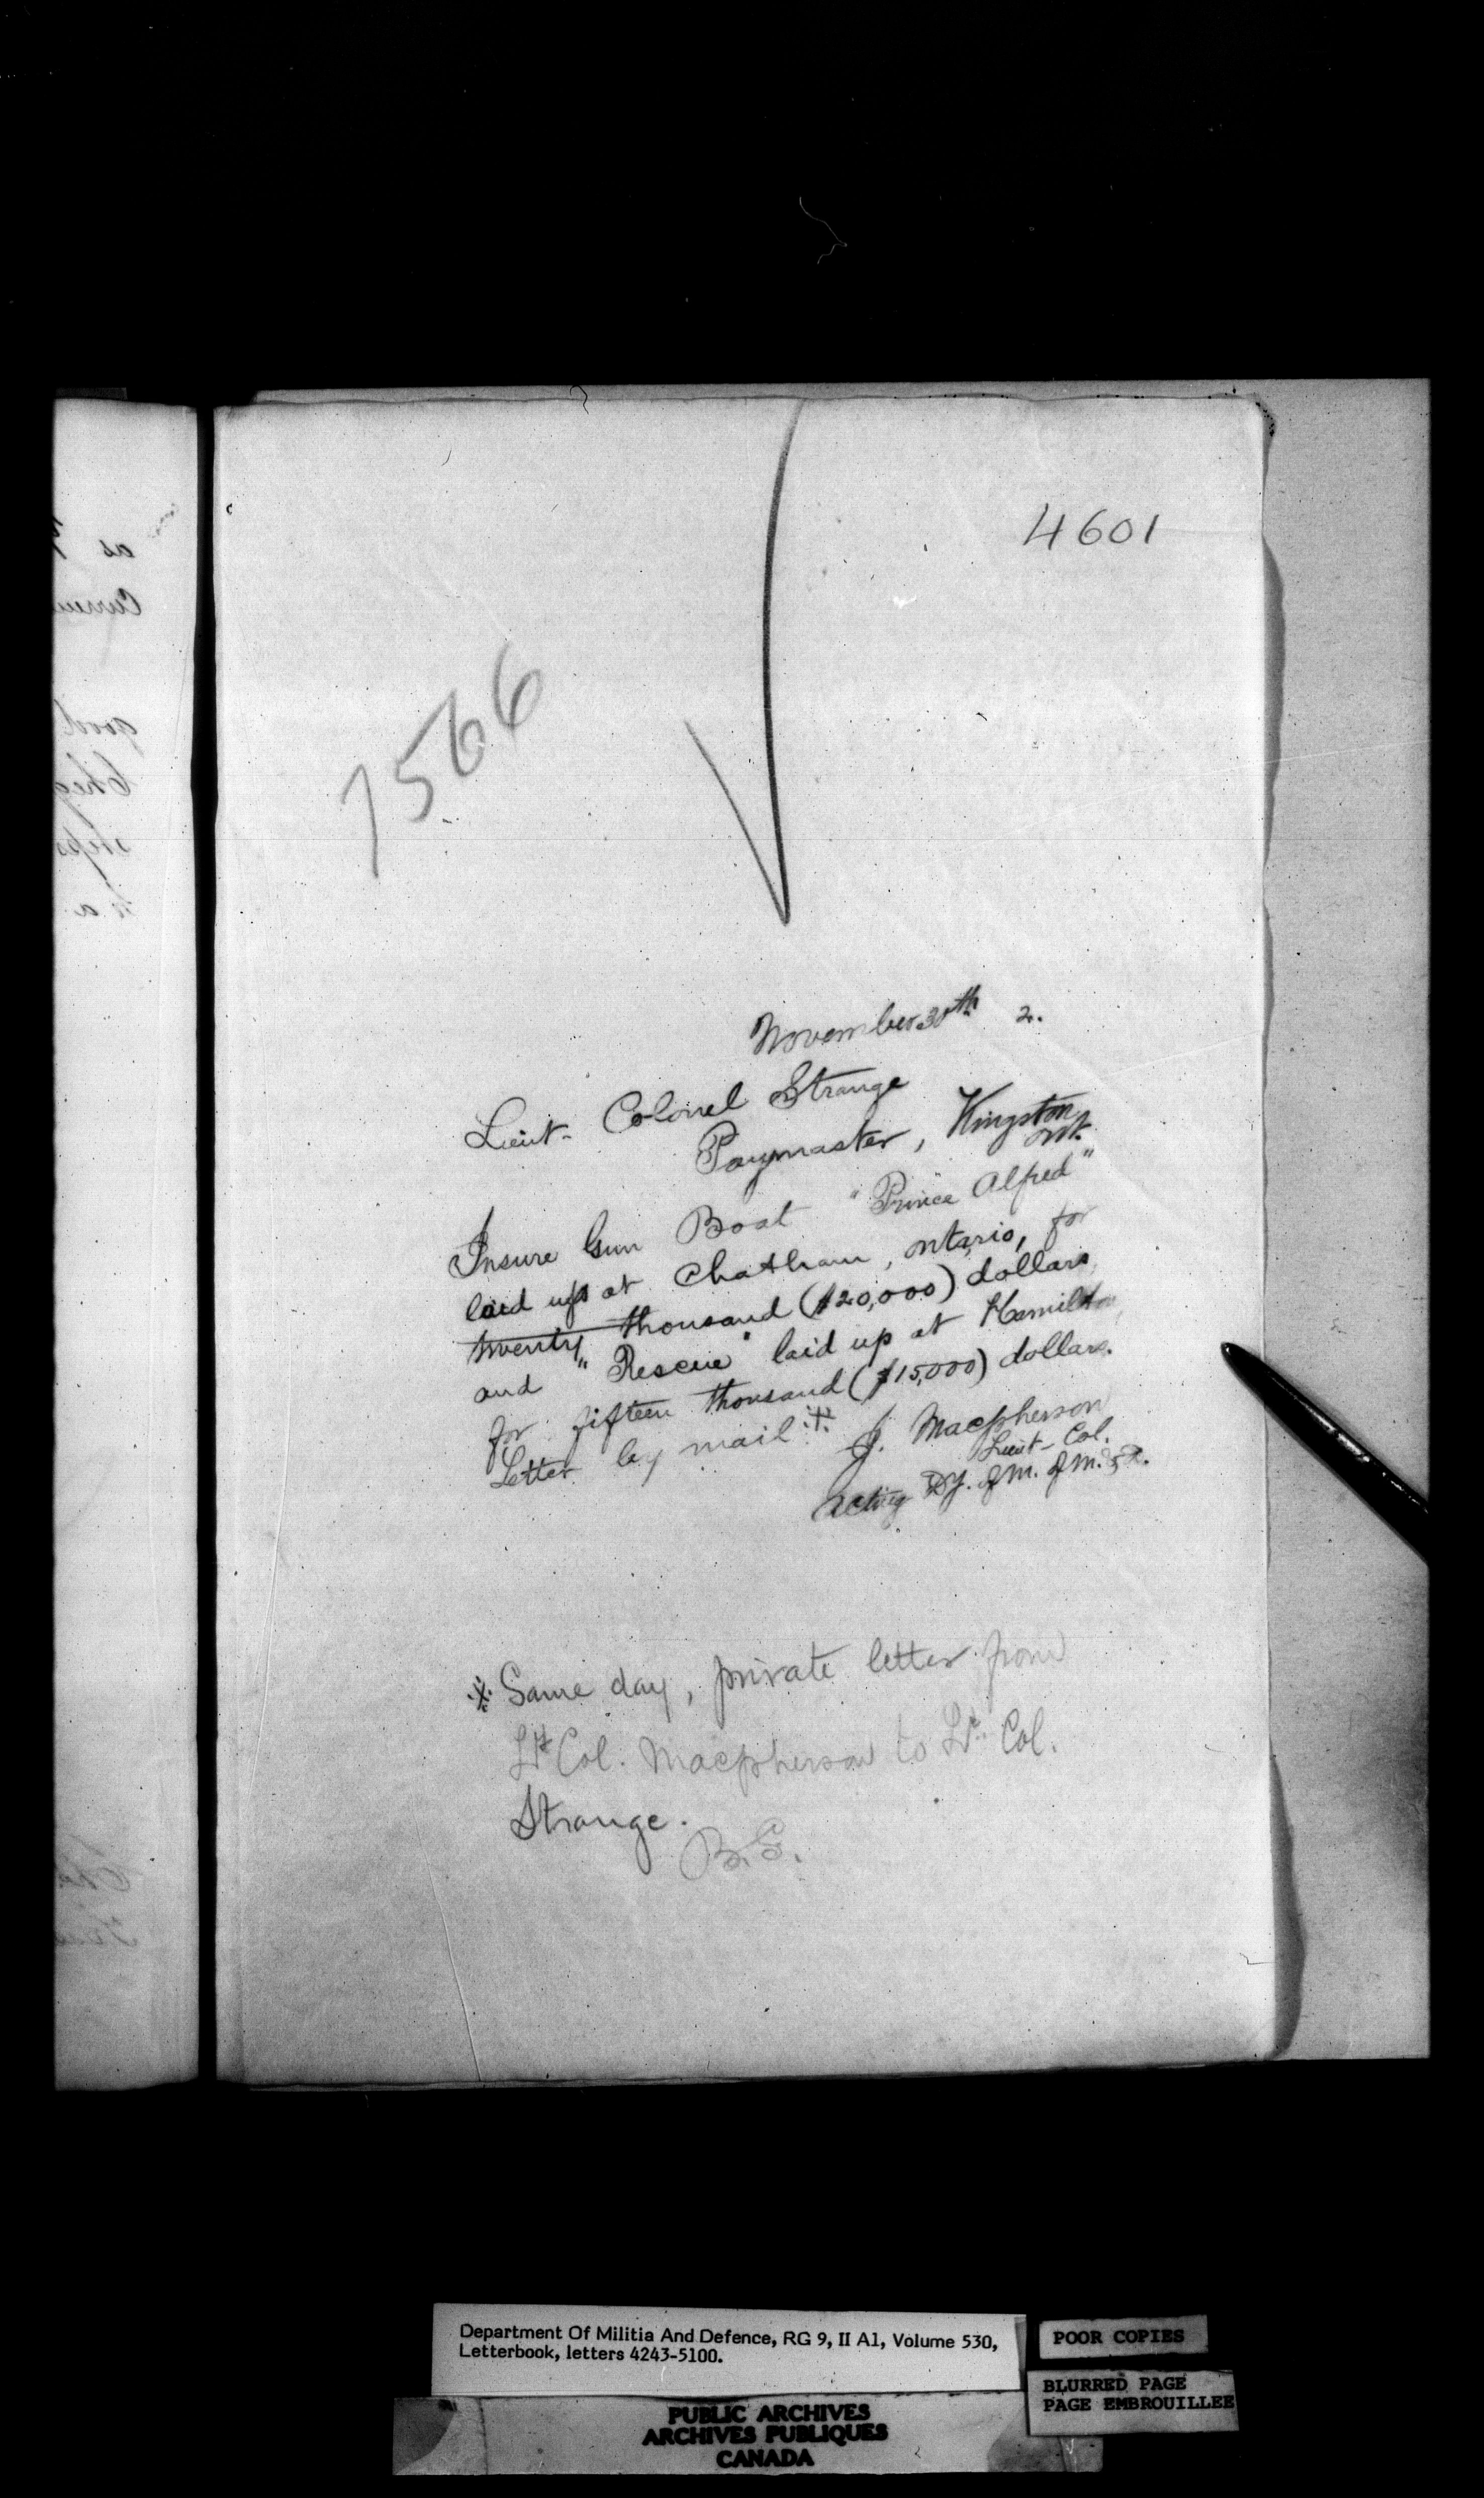 4601
7566
November 30th 2.
Lieut- Colonel Strange
Paymaster, Kingston
Ont.
Insure Gun Boat "Prince Alfred"
laid up at Chatham, Ontario, for
twenty thousand ($20,000) dollars,
and "Rescue" laid up at Hamilton
for fifteen thousand ($15,000) dollars.
Letter by mail ※ J. Macpherson
Lieut- Col.
Acting Dy. of M. of M. & D.
※ Same day, private letter from
Lt Col. Macpherson to Lt. Col.
Strange.
B.G.
as
good
Cheq
steps
to a
Department Of Militia And Defence, RG 9, II A1, Volume 530,
Letterbook, letters 4243-5100.
POOR COPIES
BLURRED PAGE
PAGE EMBROUILLEE
PUBLIC ARCHIVES
ARCHIVES PUBLIQUES
CANADA